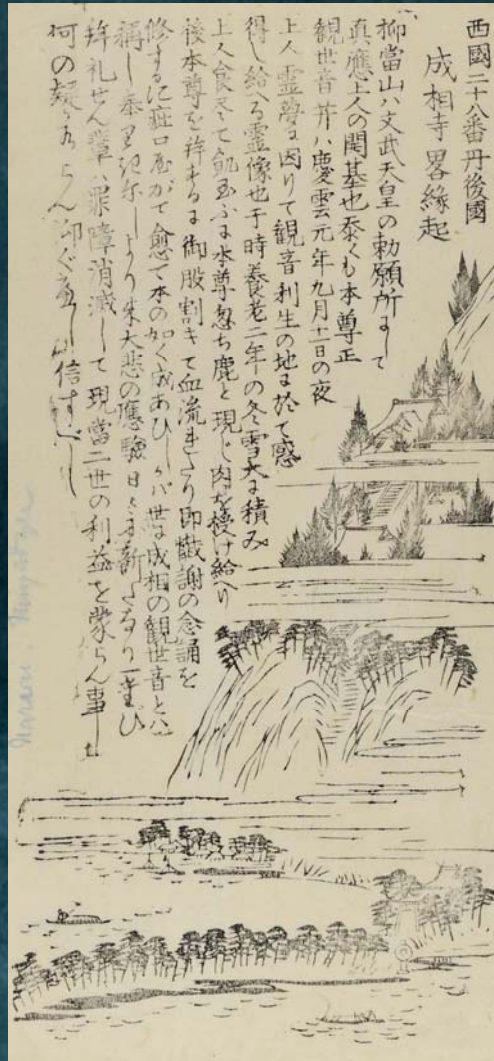 西國二十八番丹後國
成相寺畧緣起
抑當山ハ文武天皇の勅願所にして
真應上人の開基也忝くも本尊正
観世音菩ハ慶雲元年九月十一日の夜
上人霊夢に因りて観音利生の地に於て感
得し給へる霊像也于時養老二年の冬雪大に積み
上人食尽て飢玉ふに本尊忽ち鹿と現じ肉を授け給へり
後本尊を拝するに御股割きて血流れたり即懺謝の念誦を
修するに疵口忽がて愈て本の如く成あひしかバ世に成相の観世音とハ
稱し奉るより来大悲の應驗日々に新たなり一度び
拝礼せん輩ハ罪障消滅して現當二世の利益を蒙らん事
何の疑ひあらん仰ぐべし信ずべし
Nariai. Miyadzu